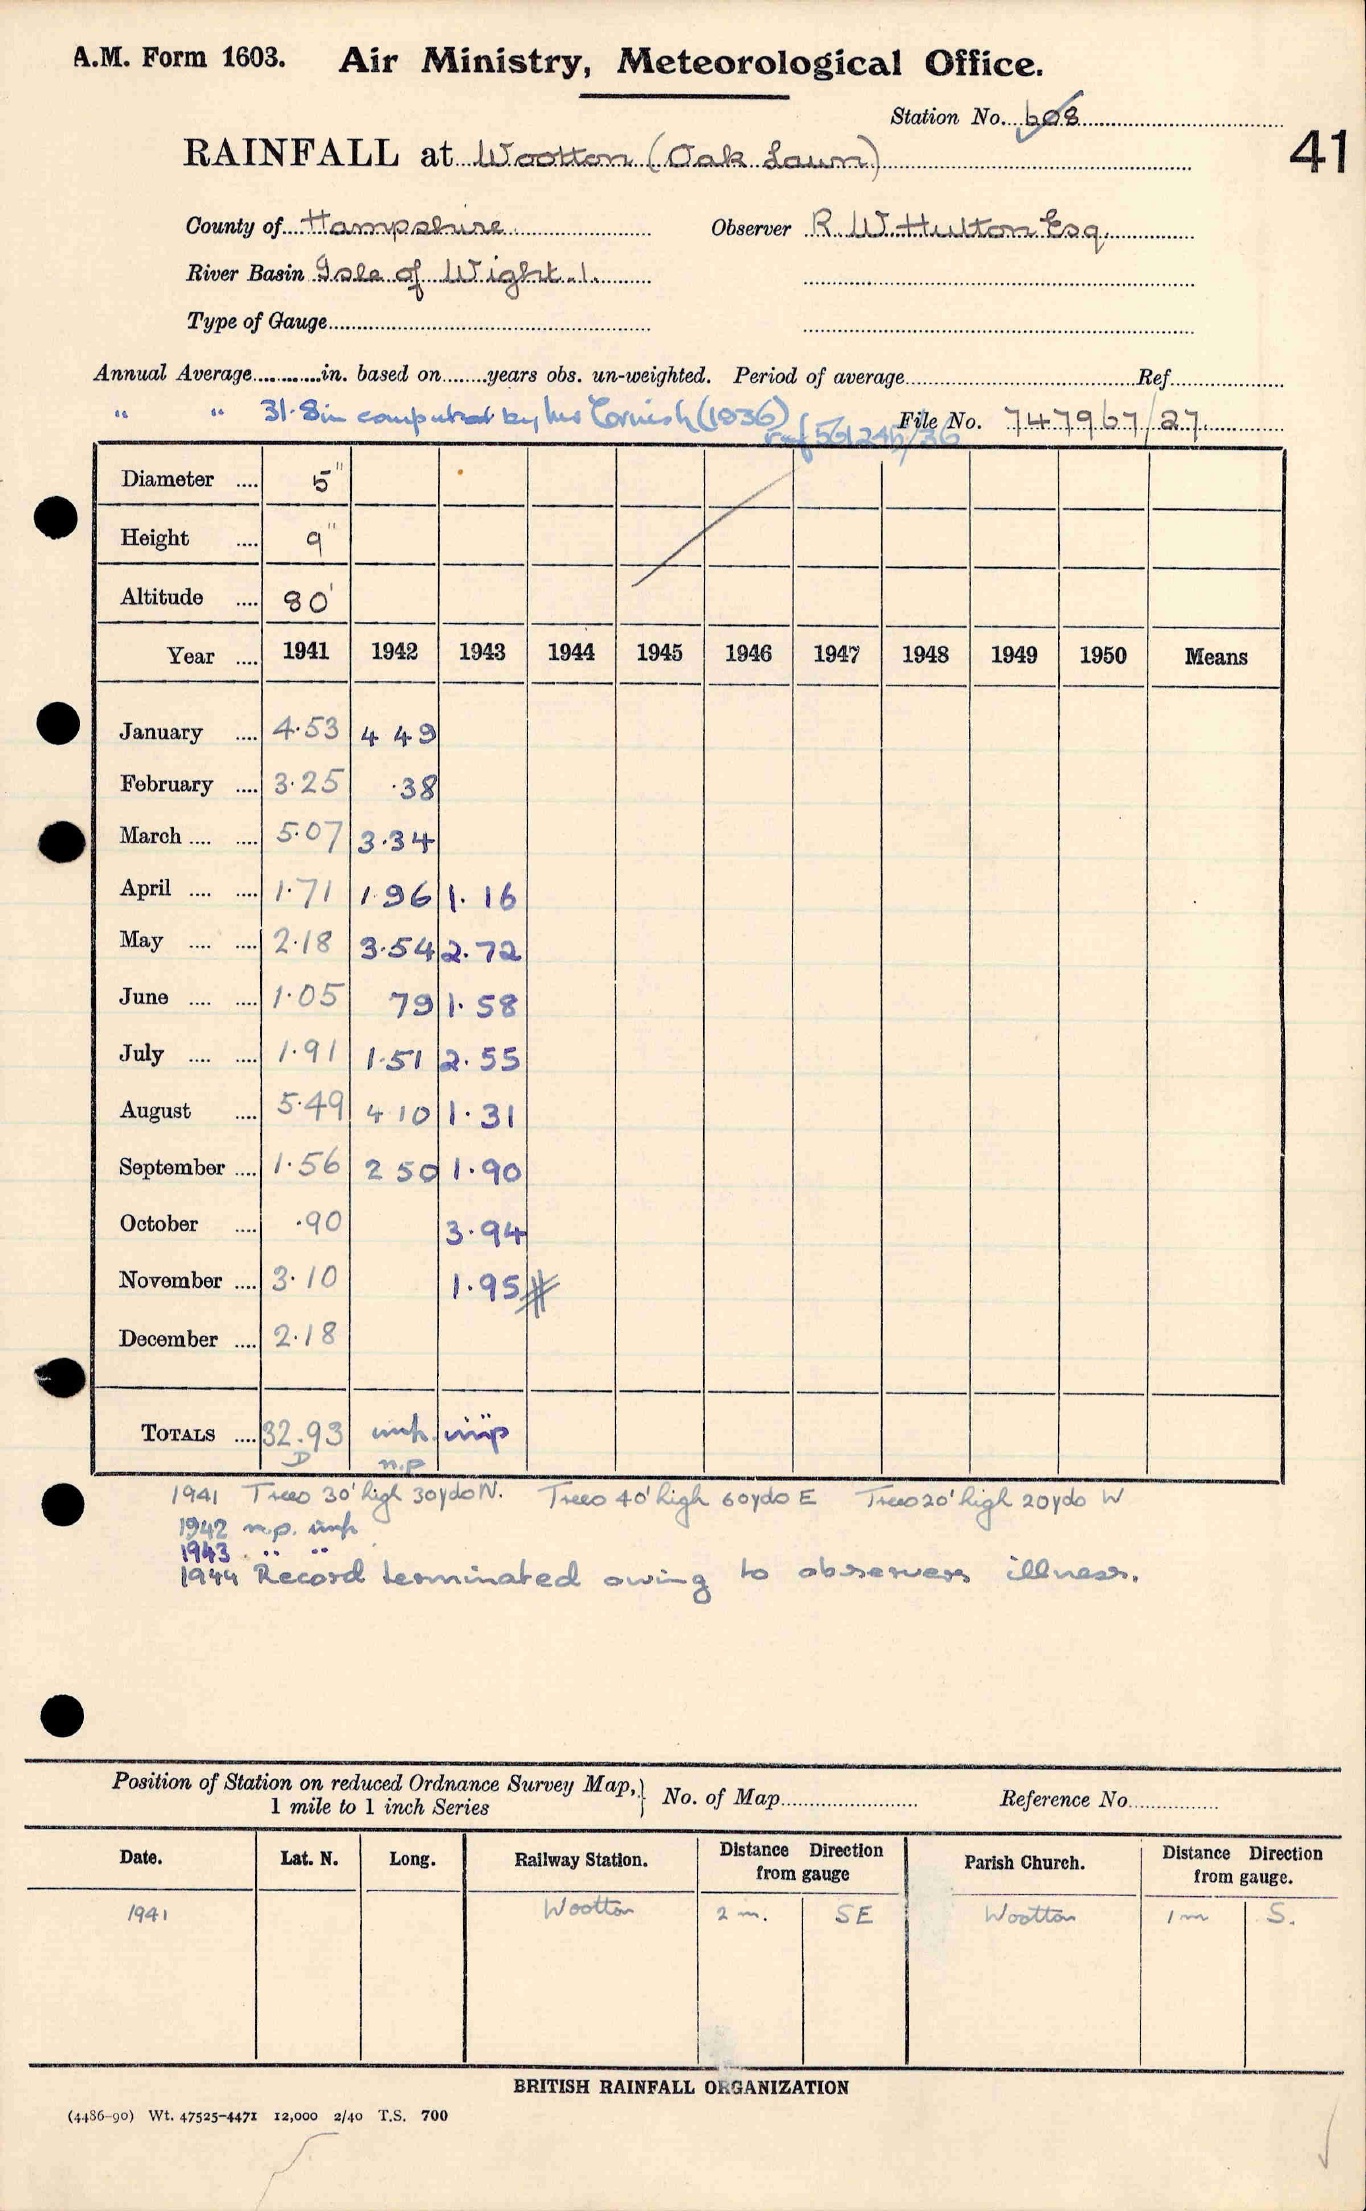 A.M. Form 1603. Air Ministry, Meteorological Office.
Station No. 608
41
RAINFALL at Wootton (Oak Lawn)
County of Hampshire Observer R. W. Hulton Esq.
River Basin Isle of Wight. 1.
Type of Gauge
Annual Average in. based on years obs. un-weighted. Period of average Ref
" " 31.8 in computed by Mr Cornish (1936) File No. 747967/27
ref 561245/36
Diameter 5"
Height 9"
Altitude 80'
Year 1941 1942 1943 1944 1945 1946 1947 1948 1949 1950 Means
January 4.53 4 49
February 3.25 .38
March 5.07 3.34
April 1.71 1.96 1.16
May 2.18 3.54 2.72
June 1.05 79 1.58
July 1.91 1.51 2.55
August 5.49 4 10 1.31
September 1.56 2 50 1.90
October .90 3.94
November 3.10 1.95
December 2.18
TOTALS 32.93 imp. imp
D n.p
1941 Trees 30' high 30yds N. Trees 40' high 60yds E Trees 20' high 20yds W
1942 n.p. imp
1943 " "
1944 Record terminated owing to observers illness.
Position of Station on reduced Ordnance Survey Map, No. of Map Reference No.
1 mile to 1 inch Series
Date. Lat. N. Long. Railway Station. Distance Direction from gauge Parish Church. Distance Direction from gauge.
1941 Wootton 2 m. SE Wootton 1 m S.
BRITISH RAINFALL ORGANIZATION
(4486-90) Wt. 47525-4471 12,000 2/40 T.S. 700